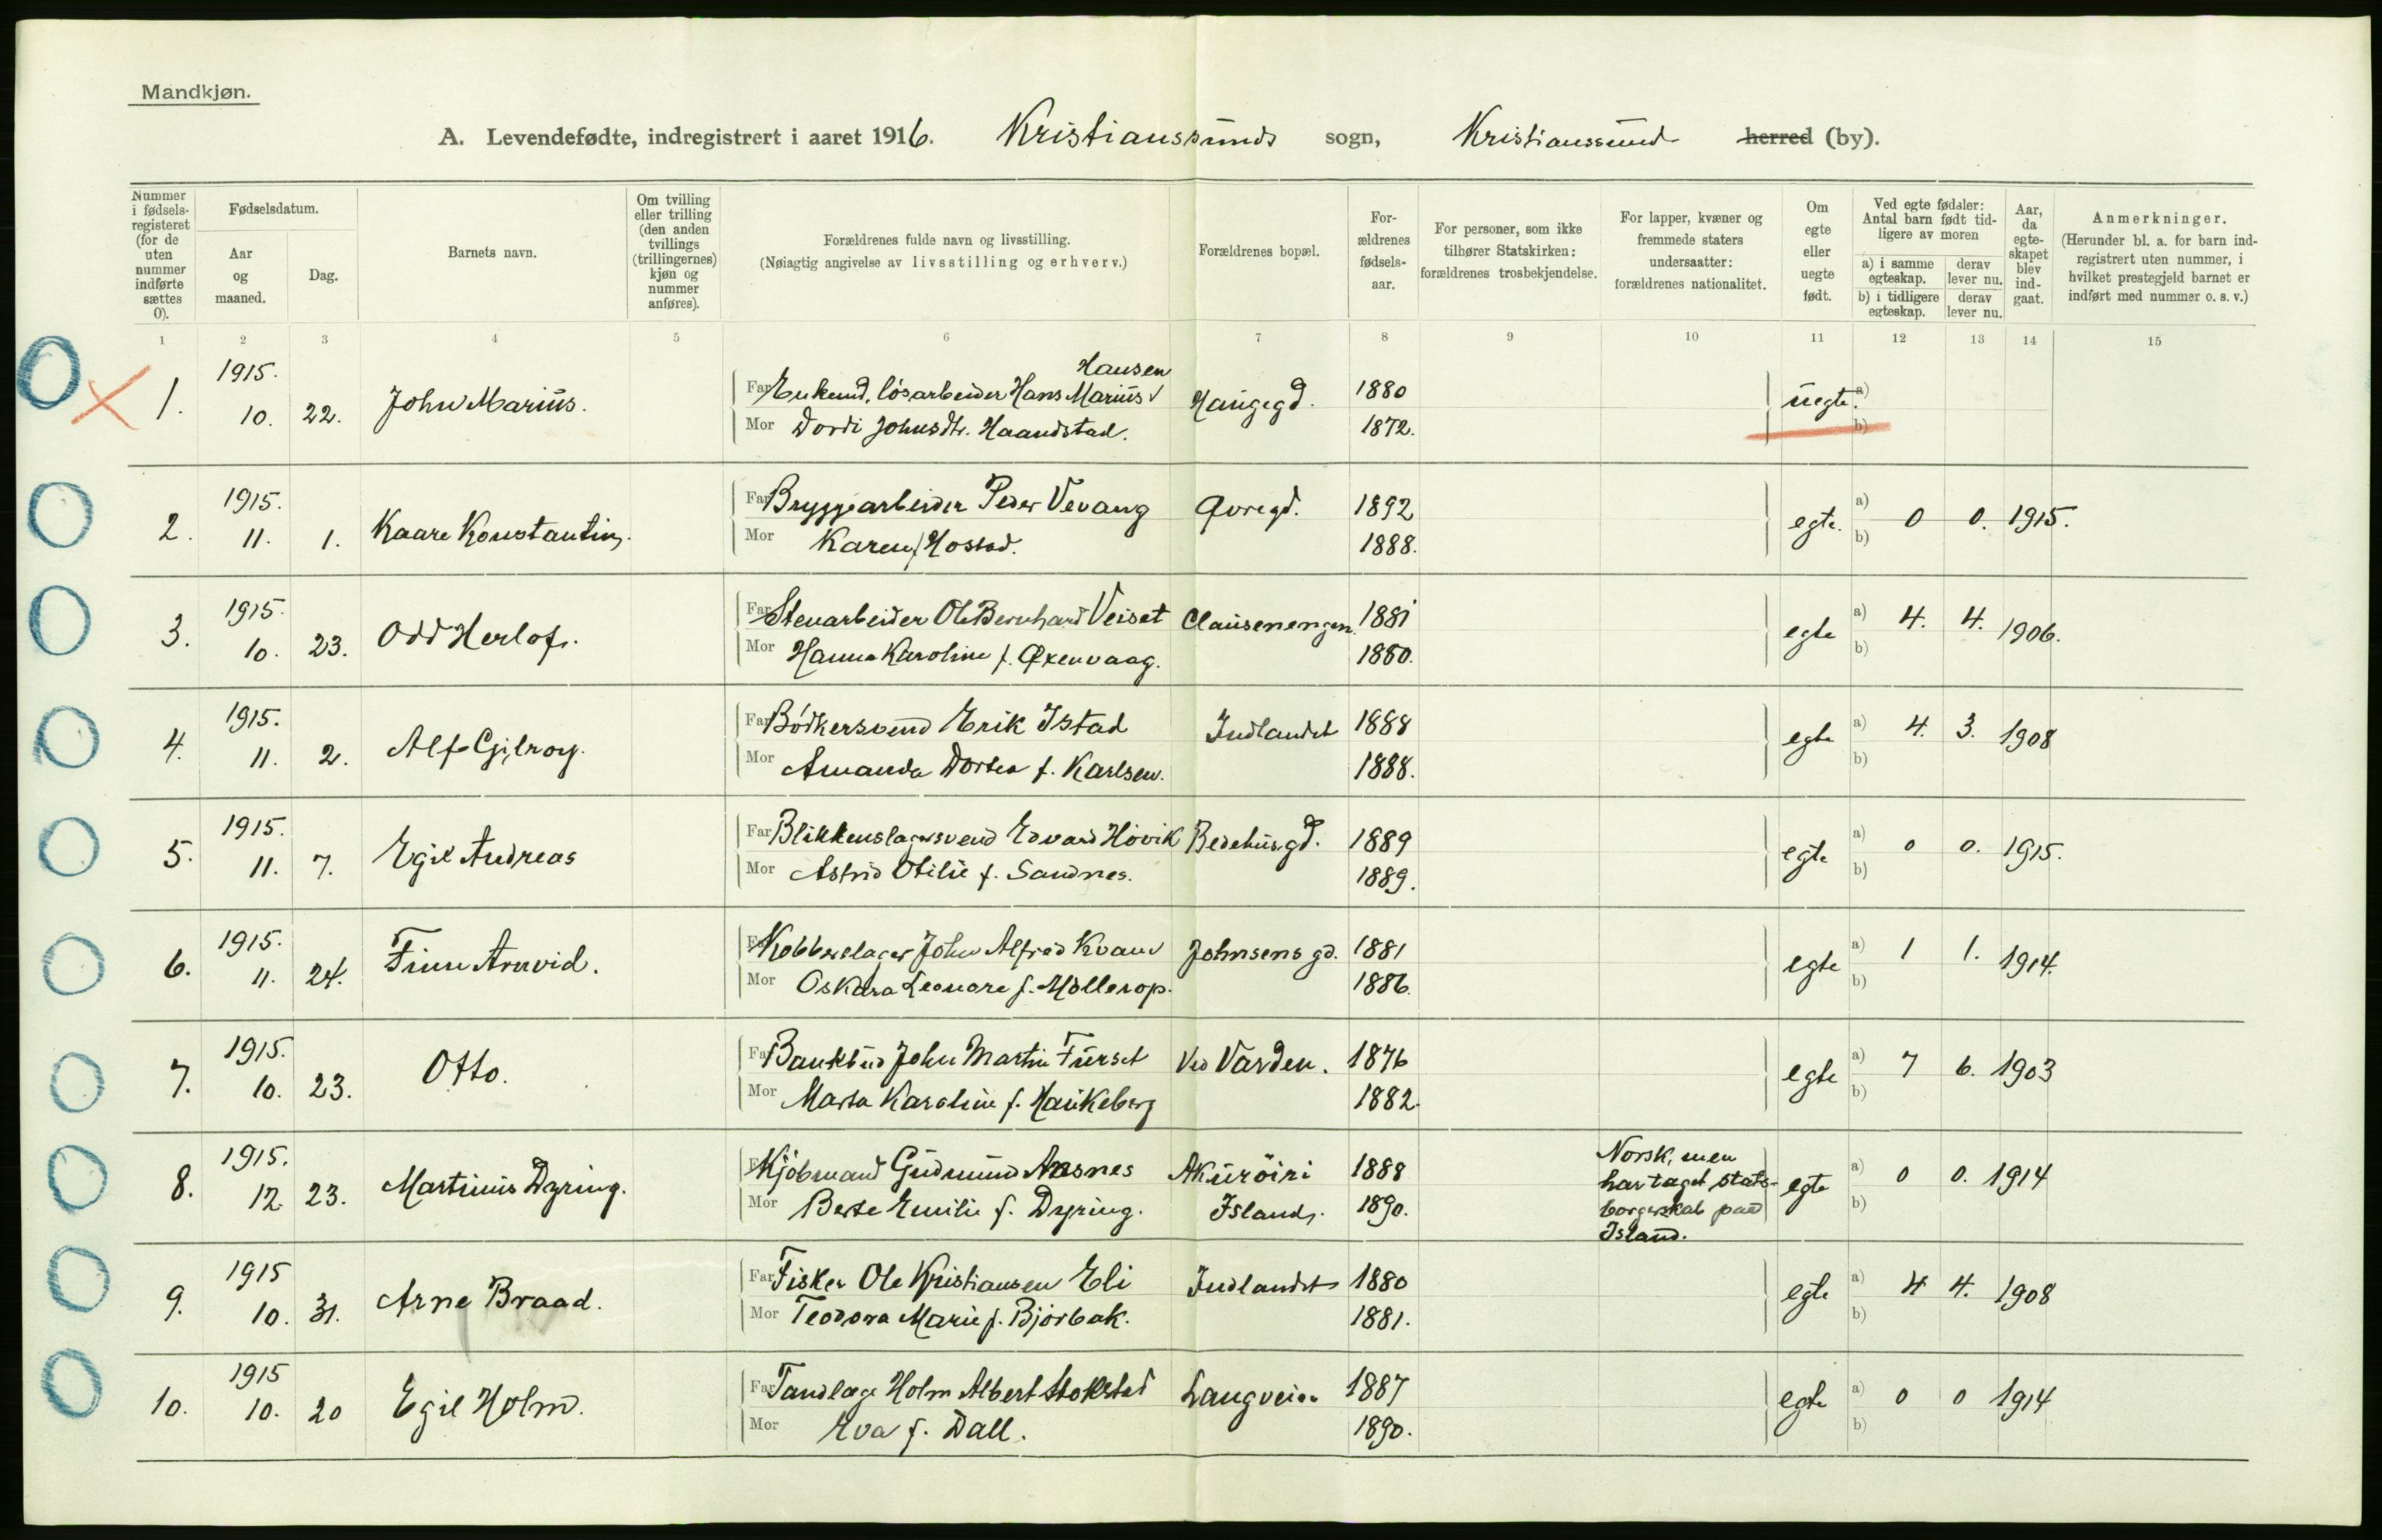 Mandkjøn.
A. Levendefødte, indregistrert i aaret 1916. Kristianssunds sogn, Kristianssund herred (by).
Nummer i fødsels-registeret (for de uten nummer indførte sættes 0).
Fødselsdatum.
Aar og maaned.
Dag.
Barnets navn.
Om tvilling eller trilling (den anden tvillings (trillingernes) kjøn og nummer anføres).
Forældrenes fulde navn og livsstilling.
(Nøiagtig angivelse av livsstilling og erhverv.)
Forældrenes bopæl.
For-ældrenes fødsels-aar.
For personer, som ikke tilhører Statskirken: forældrenes trosbekjendelse.
For lapper, kvæner og fremmede staters undersaatter: forældrenes nationalitet.
Om egte eller uegte født.
Ved egte fødsler: Antal barn født tid-ligere av moren
a) i samme egteskap. derav lever nu.
b) i tidligere egteskap. derav lever nu.
Aar, da egte-skapet blev ind-gaat.
Anmerkninger.
(Herunder bl. a. for barn ind-registrert uten nummer, i hvilket prestegjeld barnet er indført med nummer o. s. v.)
1 2 3 4 5 6 7 8 9 10 11 12 13 14 15
1. 1915. 10. 22. John Marius. Far løsarbeider Hans Marius Hansen Haugegd. 1880 uegte. a)
Mor Dordi Johnsdtr. Haandstad. 1872. b)
2. 1915. 11. 1. Kaare Konstantin. Far Bryggearbeider Peder Vevang Øvregd. 1892 egte. a) 0 0. 1915.
Mor Karen f. Hostad. 1888. b)
3. 1915. 10. 23. Odd Herlof. Far Stenarbeider Ole Bernhard Veiset Clausenengen. 1881 egte a) 4. 4. 1906.
Mor Hanna Karoline f. Øxenvaag. 1880. b)
4. 1915. 11. 2. Alf Gilroy. Far Bødkersvend Erik Istad Indlandet 1888 egte a) 4. 3. 1908
Mor Amanda Dortea f. Karlsen. 1888. b)
5. 1915. 11. 7. Egil Andreas Far Blikkenslagersvend Edvard Hovik Bedehusgd. 1889 egte a) 0 0. 1915.
Mor Astrid Otilie f. Sandnes. 1889. b)
6. 1915. 11. 24. Finn Arnvid. Far Kobberslager John Alfred Kvam Johnsens gd. 1881 egte a) 1 1. 1914.
Mor Oskara Leonore f. Møllerop. 1886. b)
7. 1915. 10. 23. Otto. Far Bankbud John Martin Furset Ved Varden. 1876 egte a) 7 6. 1903
Mor Marta Karoline f. Haukeberg 1882. b)
8. 1915. 12. 23. Martinus Dyring. Far Kjøbmand Gudmund Aasnes Akurøiri 1888 Norsk, men har taget stats-borgerskab paa Island. egte a) 0 0. 1914
Mor Berte Emilie f. Dyring. Island. 1890. b)
9. 1915 10. 31. Arne Braad. Far Fisker Ole Kristiansen Eli Indlandet 1880 egte a) 4 4. 1908
Mor Teodora Marie f. Bjørbak. 1881. b)
10. 1915 10. 20 Egil Holm. Far Tandlæge Holm Albert Stokstad Langveien 1887 egte a) 0 0 1914
Mor Eva f. Dall. 1890. b)